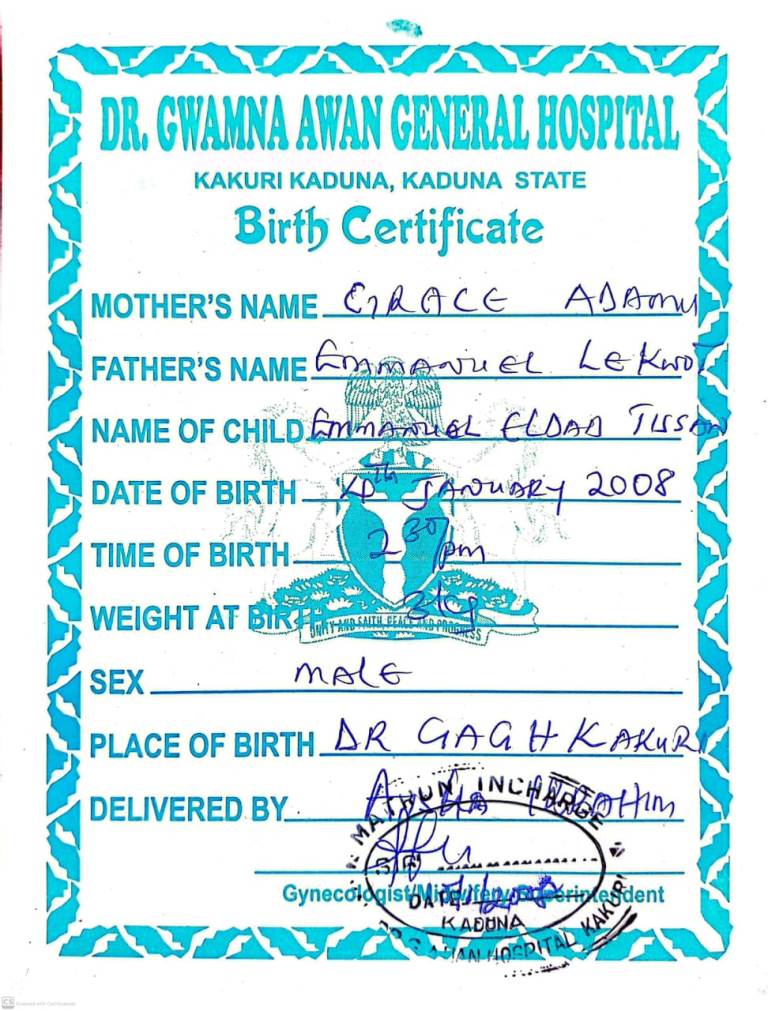 DR. GWAMNA AWAN GENERAL HOSPITAL
KAKURI KADUNA, KADUNA STATE
Birth Certificate
MOTHER'S NAME GRACE ADAMU
FATHER'S NAME EMMANUEL LEKWOT
NAME OF CHILD EMMANUEL ELDAD TISSAN
DATE OF BIRTH 4th JANUARY 2008
TIME OF BIRTH 2 30 pm
WEIGHT AT BIRTH 3kg
UNITY AND FAITH, PEACE AND PROGRESS
SEX MALE
PLACE OF BIRTH DR GAGH KAKURI
DELIVERED BY IBRAHIM
MATRON INCHARGE
Gynecologist/Midwifery Superintendent
DATE
KADUNA
DR G AWAN HOSPITAL KAKURI
CS Scanned with CamScanner